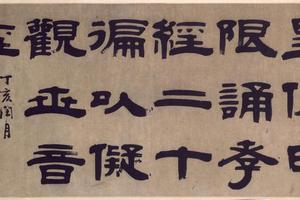 皇侃日
限誦孝
經二十
徧以擬
觀世音
經
丁亥閏月